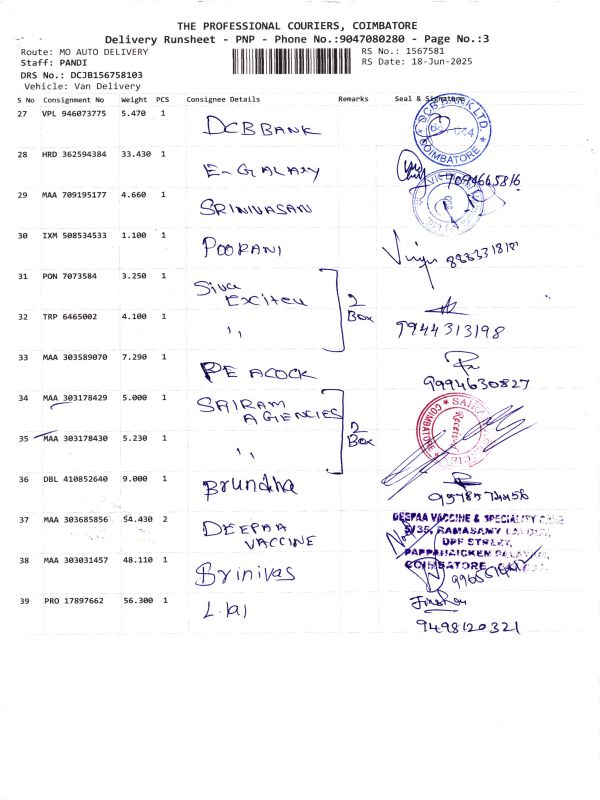 THE PROFESSIONAL COURIERS, COIMBATORE
Delivery Runsheet - PNP - Phone No.:9047080280 - Page No.:3
Route: MO AUTO DELIVERY RS No.: 1567581
Staff: PANDI RS Date: 18-Jun-2025
DRS No.: DCJB156758103
Vehicle: Van Delivery
S No Consignment No Weight PCS Consignee Details Remarks Seal & Signature
27 VPL 946073775 5.470 1 DCB BANK
DCB BANK LTD.
COIMBATORE
28 HRD 362594384 33.430 1 E-GALAXY
29 MAA 709195177 4.660 1 SRINIVASAN
30 IXM 508534533 1.100 1 POORANI
31 PON 7073584 3.250 1 Siva
2 Box
32 TRP 6465002 4.100 1 ,, 9944313198
33 MAA 303589070 7.290 1 PEACOCK 9994630827
34 MAA 303178429 5.000 1 SAIRAM
AGENCIES
2 Box
COIMBATORE
35 MAA 303178430 5.230 1 ,,
36 DBL 410852640 9.000 1 Brundha
37 MAA 303685856 54.430 2 DEEPAA
VACCINE
DEEPAA VACCINE & SPECIALITY
RAMASAMY
DPF STREET,
COIMBATORE
38 MAA 303031457 48.110 1 Srinivas
39 PRO 17897662 56.300 1 L.lal
9498120321